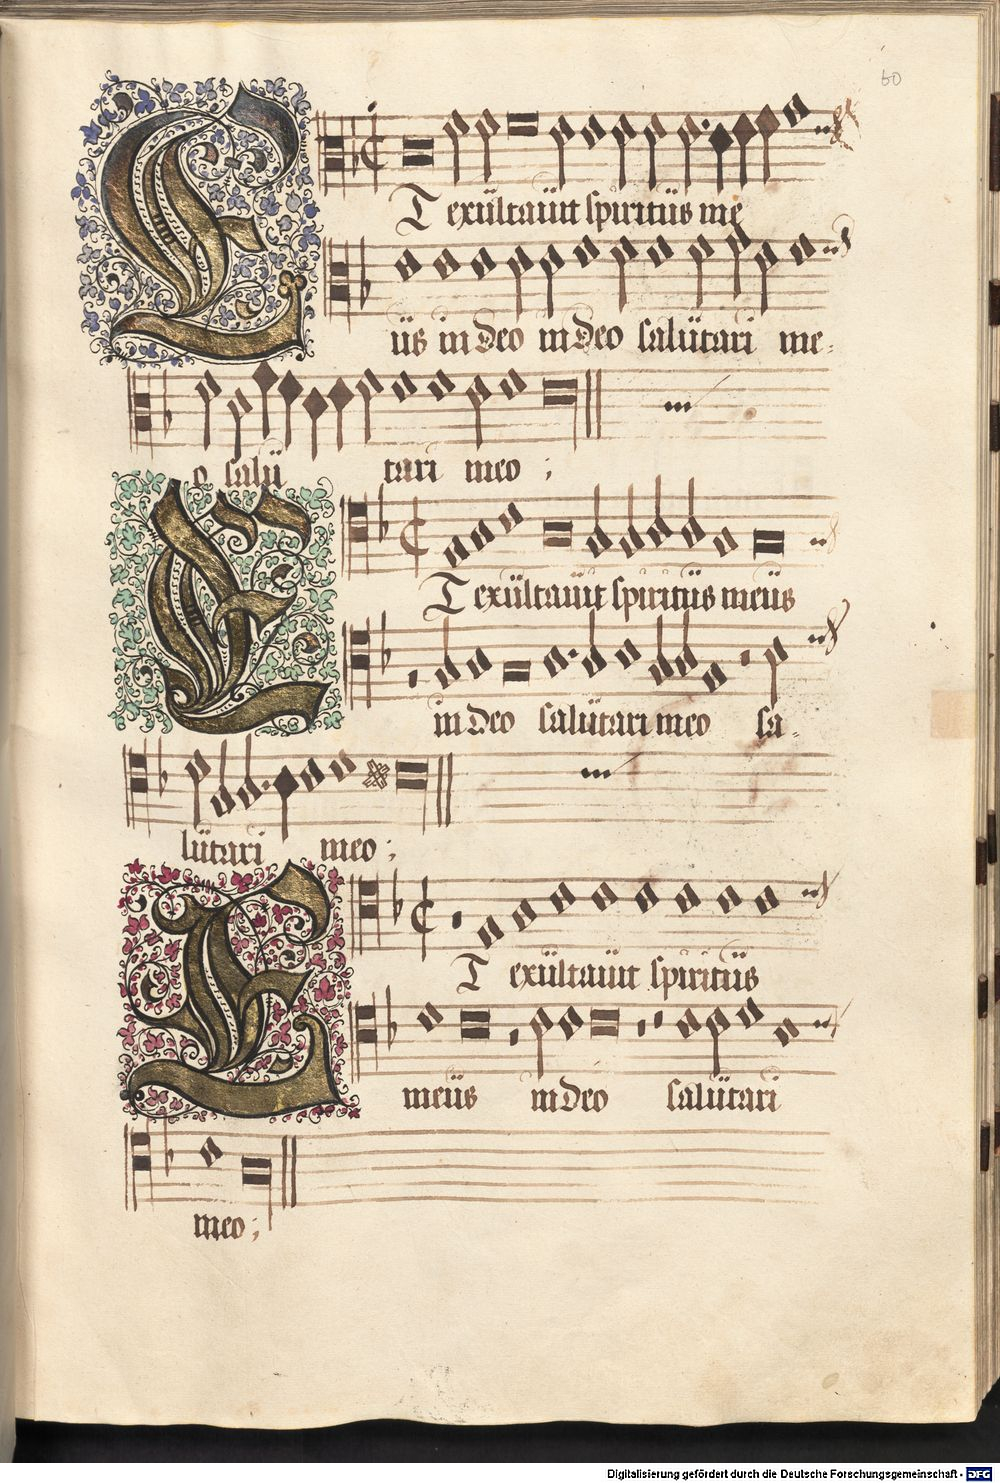 60
ET exultauit spiritus me
us in deo in deo salutari me-
o salu tari meo :
ET exultauit spiritus meus
in deo salutari meo sa-
lutari meo :
ET exultauit spiritus
meus in deo salutari
meo :
Digitalisierung gefördert durch die Deutsche Forschungsgemeinschaft - DFG